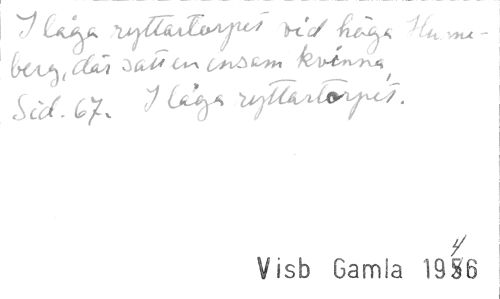 I låga ryttartorpet vid höga Hunne-
berg, där satt en ensam kvinna,
Sid. 67. I låga ryttartorpet.
Visb Gamla 1946